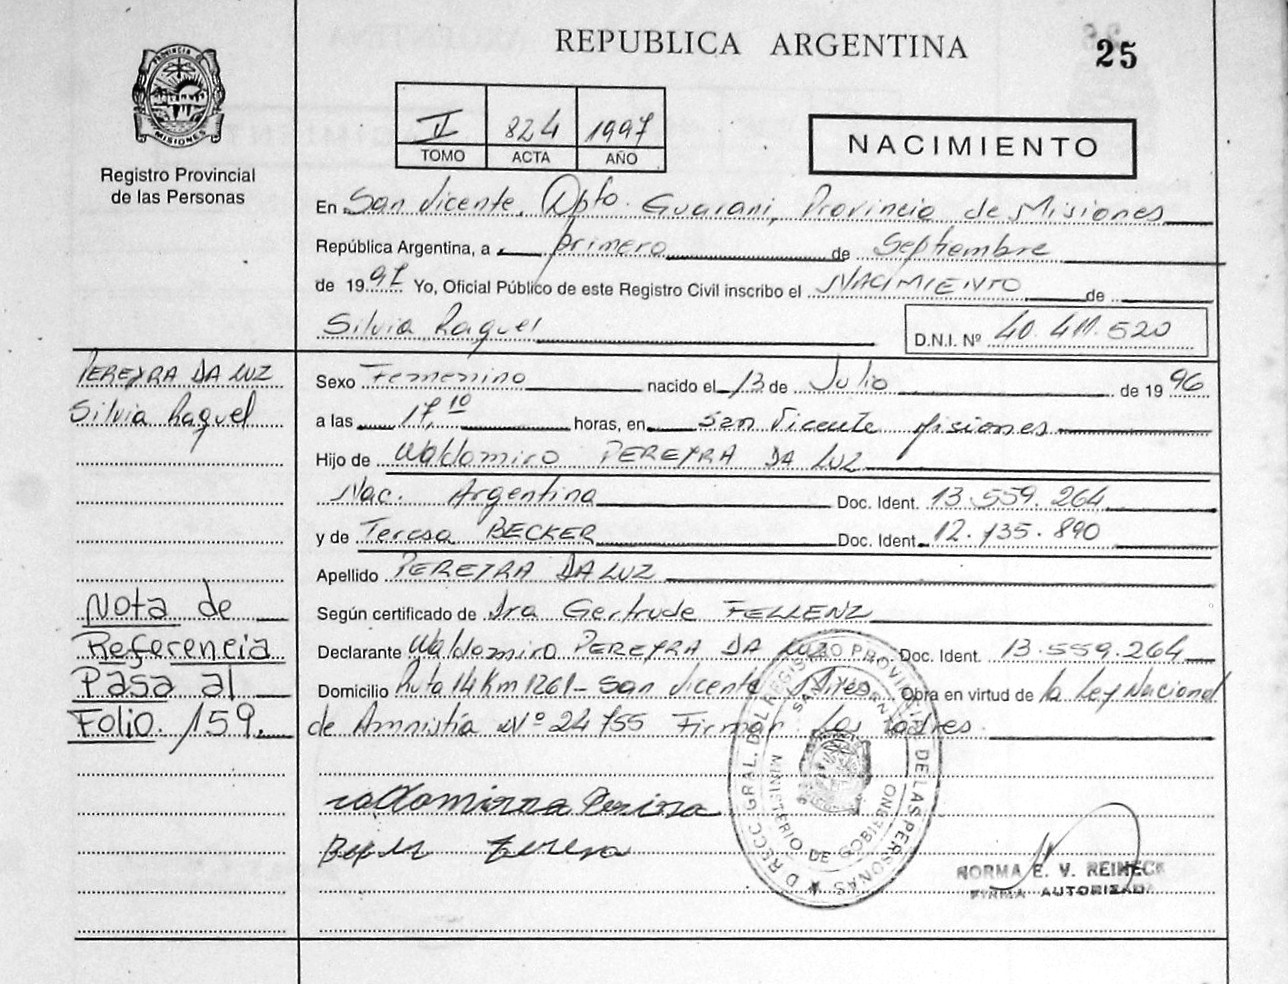 REPUBLICA ARGENTINA
25
PROVINCIA
MISIONES
Registro Provincial
de las Personas
II 824 1997
TOMO ACTA AÑO
NACIMIENTO
En San Vicente, Dpto. Guarani, Provincia de Misiones
República Argentina, a primero de Septiembre
de 1997 Yo, Oficial Público de este Registro Civil inscribo el NACIMIENTO de
Silvia Raquel D.N.I. Nº 40.411.520
PEREYRA DA LUZ
Silvia Raquel
Sexo Femenino nacido el 13 de Julio de 1996
a las 17,10 horas, en San Vicente Misiones
Hijo de Waldomiro PEREYRA DA LUZ
Nac. Argentina Doc. Ident. 13.559.264
y de Teresa BECKER Doc. Ident. 12.735.890
Apellido PEREYRA DA LUZ
Según certificado de Dra Gertrude FELLENZ
Declarante Waldomiro PEREYRA DA LUZ Doc. Ident. 13.559.264
Domicilio Ruta 14 Km 1261 - San Vicente Mnes. Obra en virtud de la Ley Nacional
de Amnistía Nº 24755 Firman los Padres.
Nota de
Referencia
Pasa al
Folio. 159.
DIRECC. GRAL. DEL REGISTRO PROVINCIAL DE LAS PERSONAS
MINISTERIO DE GOBIERNO
NORMA E. V. REINECK
FIRMA AUTORIZADA